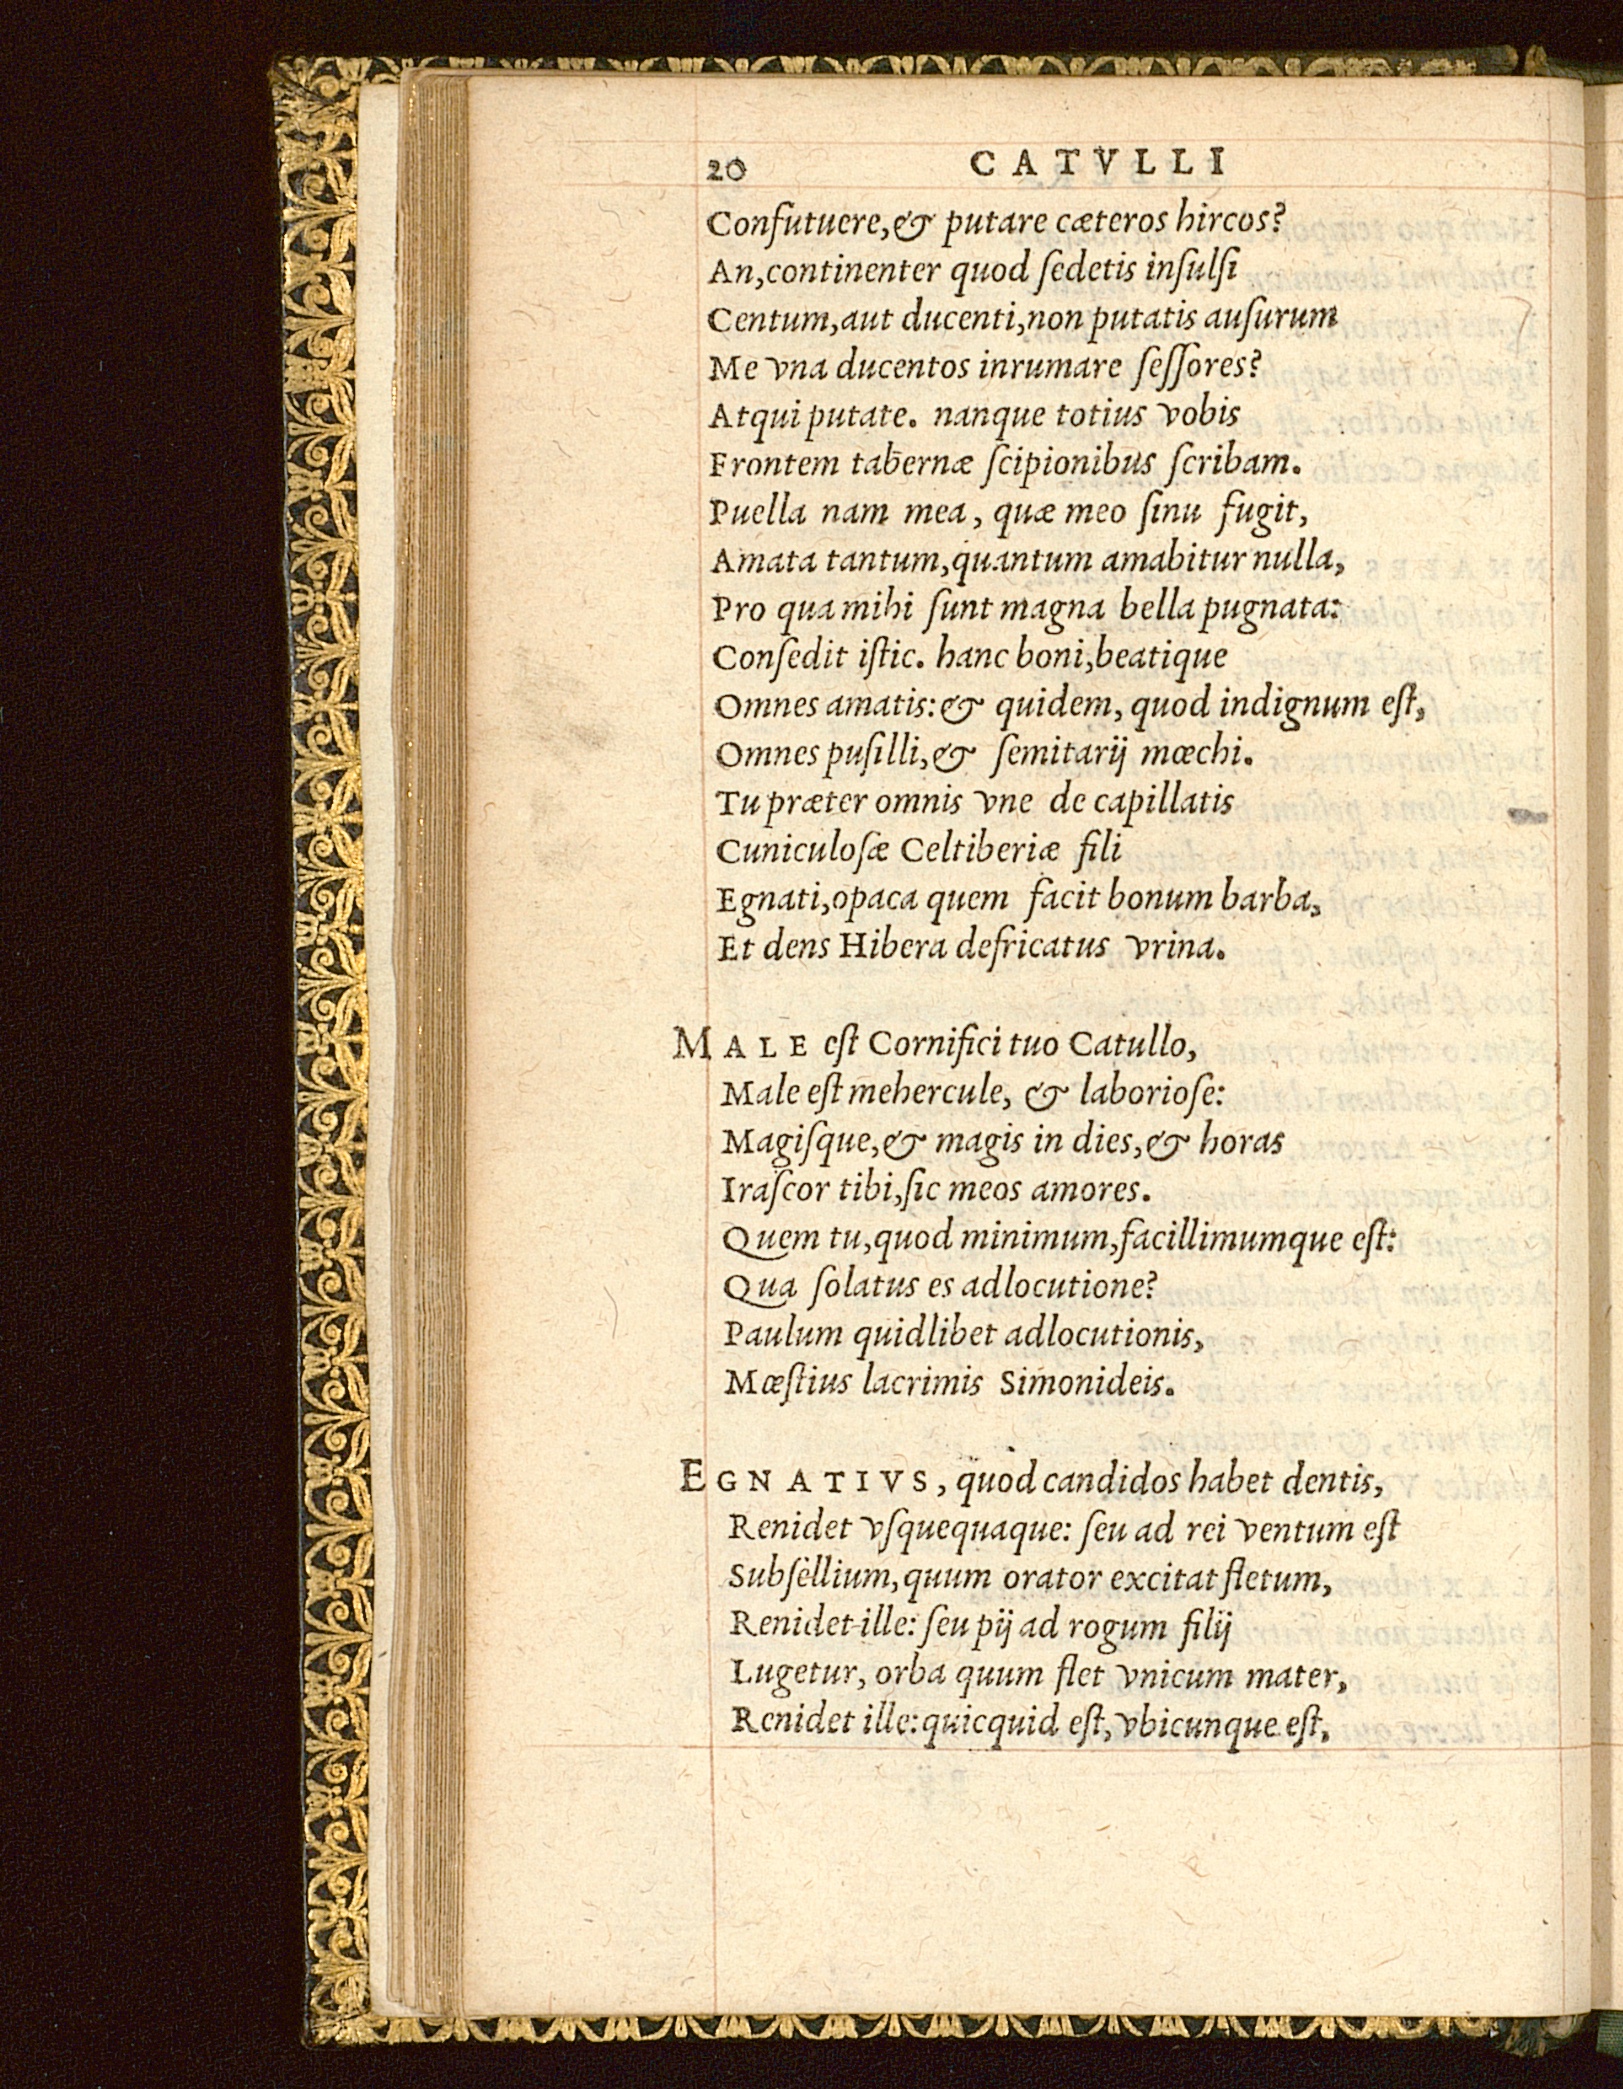 20 CATVLLI
Confutuere,& putare cæteros hircos?
An,continenter quod ſedetis inſulſi
Centum,aut ducenti,non putatis auſurum
Me vna ducentos inrumare ſeſſores?
Atqui putate. nanque totius vobis
Frontem tabernæ ſcipionibus ſcribam.
Puella nam mea, quæ meo ſinu fugit,
Amata tantum,quantum amabitur nulla,
Pro qua mihi ſunt magna bella pugnata:
Conſedit iſtic. hanc boni,beatique
Omnes amatis:& quidem, quod indignum eſt,
Omnes puſilli,& ſemitarij mœchi.
Tu præter omnis vne de capillatis
Cuniculoſæ Celtiberiæ fili
Egnati,opaca quem facit bonum barba,
Et dens Hibera defricatus vrina.
MALE eſt Cornifici tuo Catullo,
Male eſt mehercule, & laborioſe:
Magiſque,& magis in dies,& horas
Iraſcor tibi,ſic meos amores.
Quem tu,quod minimum,facillimumque eſt:
Qua ſolatus es adlocutione?
Paulum quidlibet adlocutionis,
Mœſtius lacrimis Simonideis.
EGNATIVS, quod candidos habet dentis,
Renidet vſquequaque: ſeu ad rei ventum eſt
Subſellium,quum orator excitat fletum,
Renidet ille: ſeu pij ad rogum filij
Lugetur, orba quum flet vnicum mater,
Renidet ille:quicquid eſt,vbicunque eſt,